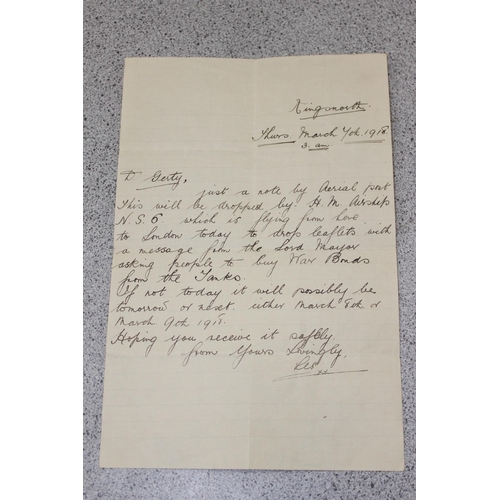 Kingsnorth.
Thurs March 7th 1918
3. am
D Gerty,
just a note by Aerial post
This will be dropped by H.M Airships
N.S 6 which is flying from here
to London today to drop leaflets with
a message from the Lord Mayor
asking people to buy War Bonds
from the Tanks.
If not today it will possibly be
tomorrow or next. either March 8th or
March 9th 1918.
Hoping you receive it saftly
from Yours Lovingly,
Les